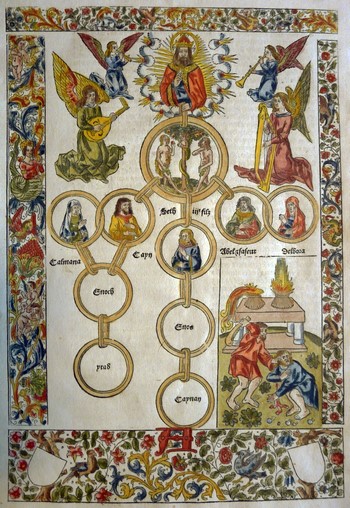 Seth iiiᵉ filz
Calmana
Cayn
Abel
Delbora
Enoch
Enos
yrad
Caynan